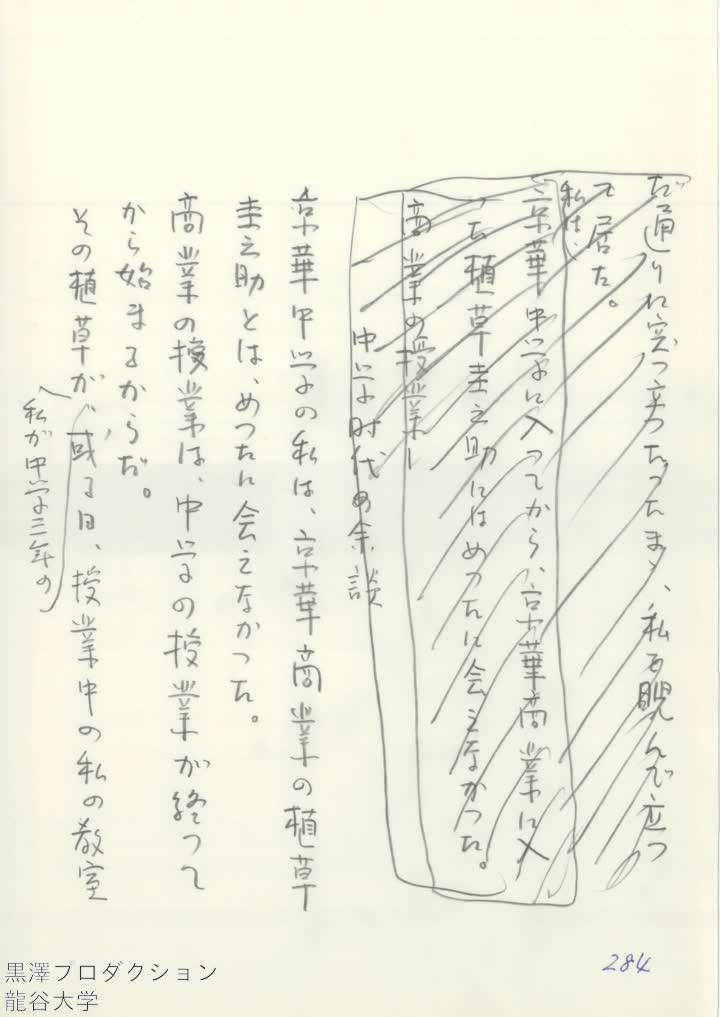 だ通りに突っ立ったまゝ、私を睨んで立つ
て居た。
私は、
京華中学に入ってから、京華商業に入
った植草圭之助にはめったに会えなかった。
商業の授業し
中学時代の余談
京華中学の私は、京華商業の植草
圭之助とは、めったに会えなかった。
商業の授業は、中学の授業が終って
から始まるからだ。
その植草が、或る日、授業中の私の教室
へ私が中学三年の
284
黒澤プロダクション
龍谷大学